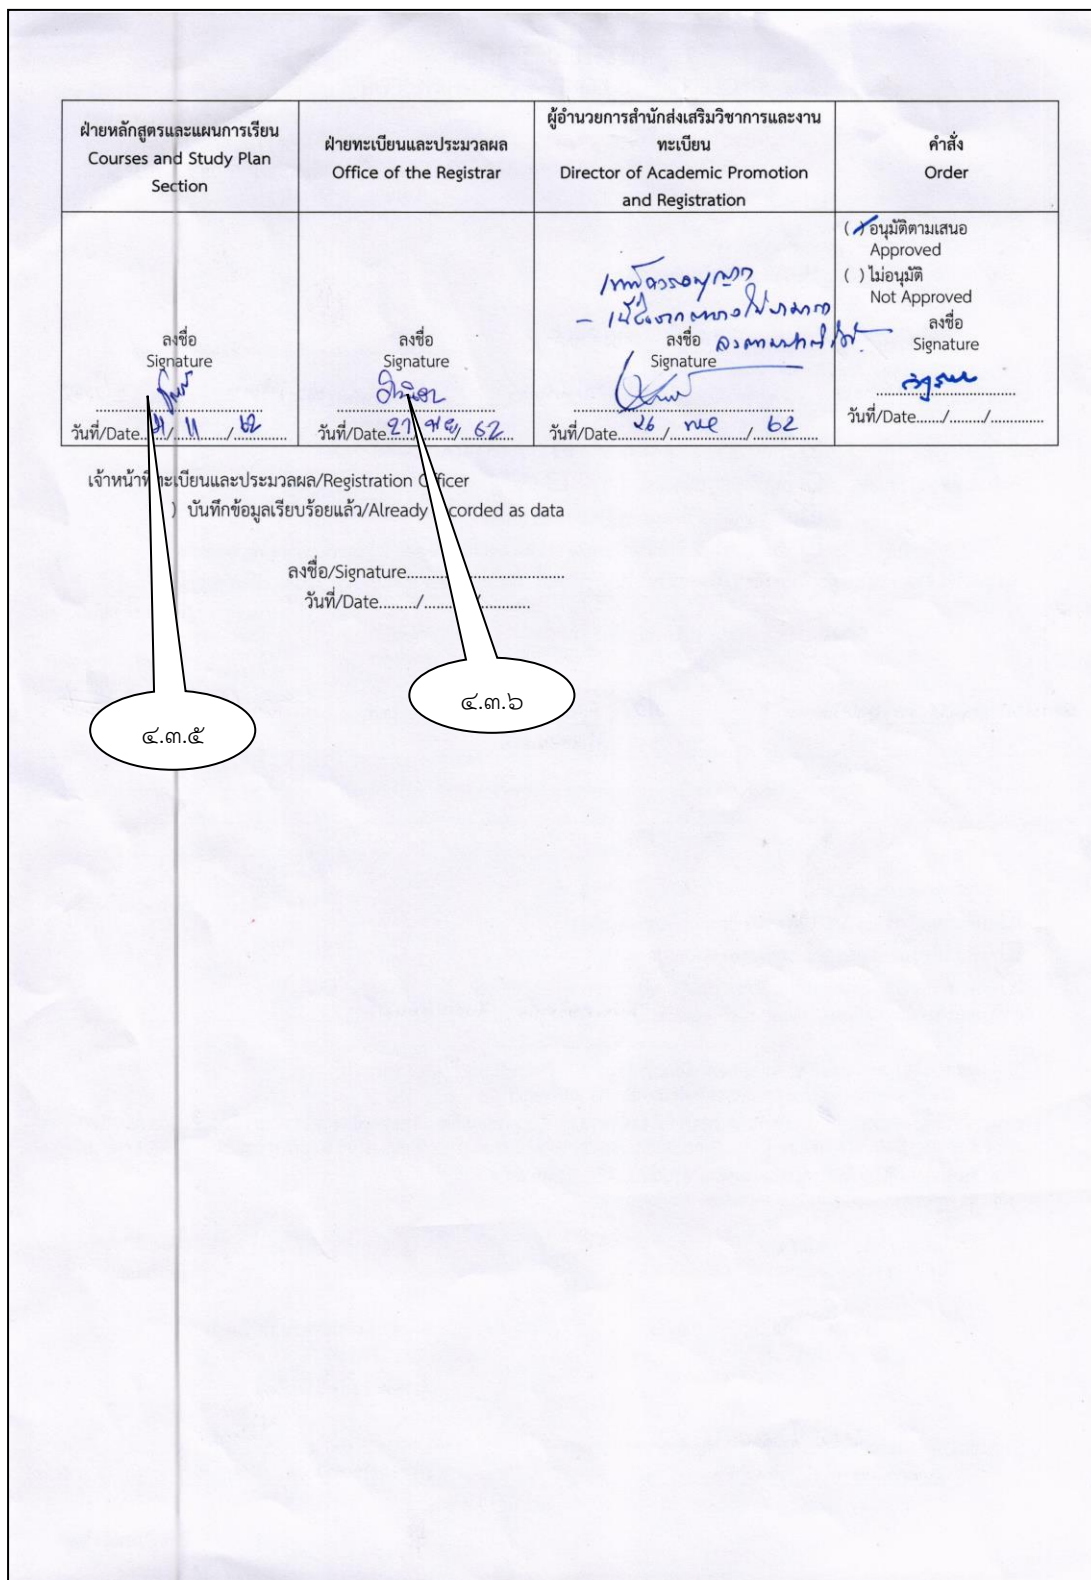 ฝ่ายหลักสูตรและแผนการเรียน
Courses and Study Plan
Section
ฝ่ายทะเบียนและประมวลผล
Office of the Registrar
ผู้อำนวยการสำนักส่งเสริมวิชาการและงาน
ทะเบียน
Director of Academic Promotion
and Registration
คำสั่ง
Order
ลงชื่อ
Signature
วันที่/Date 21/ 11 / 62
ลงชื่อ
Signature
วันที่/Date 21/ พย/ 62
ลงชื่อ
Signature
วันที่/Date 26 / พย / 62
( / ) อนุมัติตามเสนอ
Approved
( ) ไม่อนุมัติ
Not Approved
ลงชื่อ
Signature
วันที่/Date......./........./.............
เจ้าหน้าที่ทะเบียนและประมวลผล/Registration Officer
) บันทึกข้อมูลเรียบร้อยแล้ว/Already recorded as data
ลงชื่อ/Signature......................................
วันที่/Date........./............/............
๔.๓.๕
๔.๓.๖